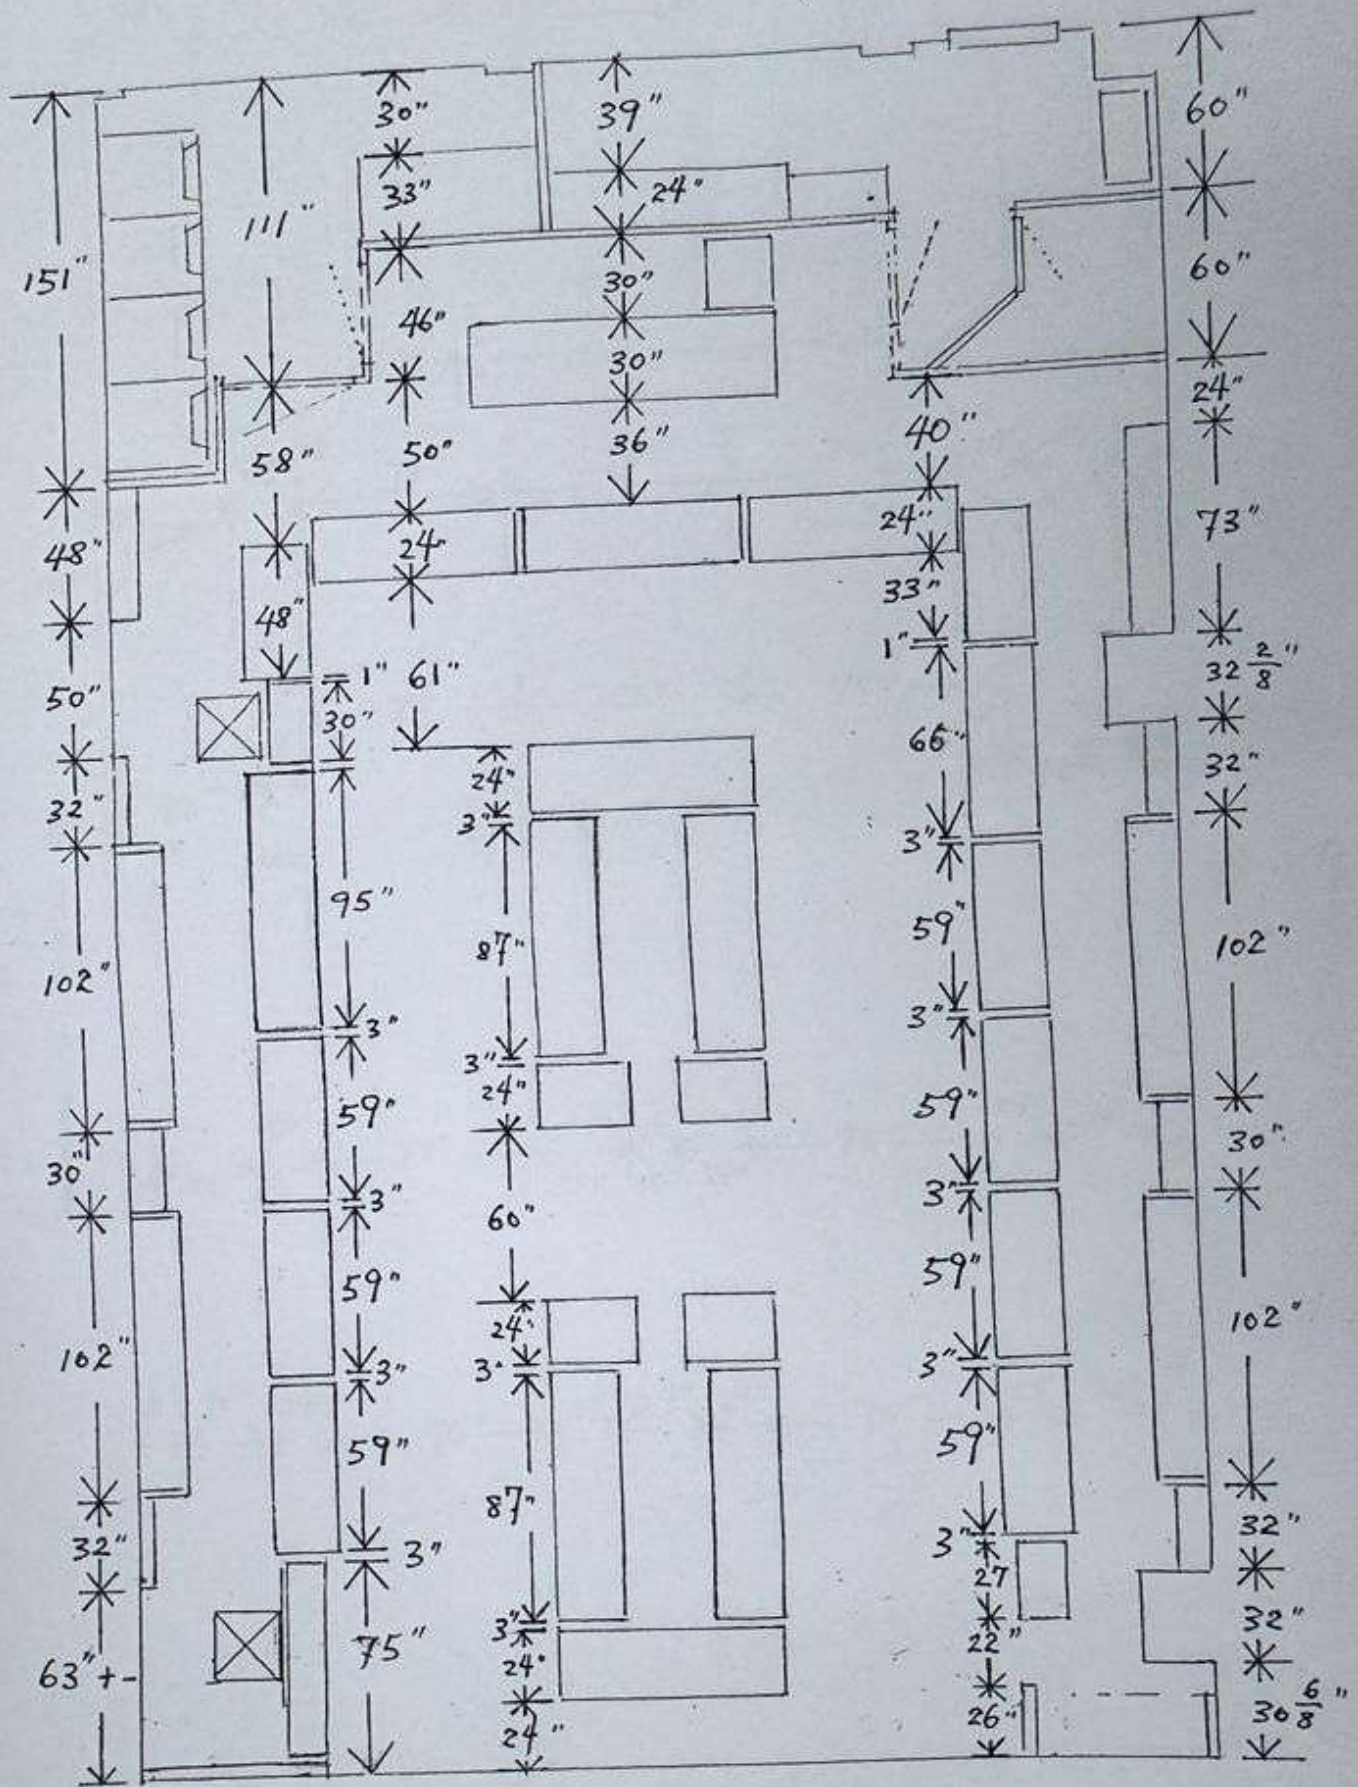 151"
48"
50"
32"
102"
30"
102"
32"
63"+-
111"
58"
48"
1"
30"
95"
3"
59"
3"
59"
3"
59"
3"
75"
30"
33"
46"
50"
24"
61"
39"
24"
30"
30"
36"
24"
3"
87"
3"
24"
60"
24"
3"
87"
3"
24"
24"
40"
24"
33"
1"
66"
3"
59"
3"
59"
3"
59"
3"
59"
3"
27
22"
26"
60"
60"
24"
73"
32 2/8"
32"
102"
30"
102"
32"
32"
30 6/8"